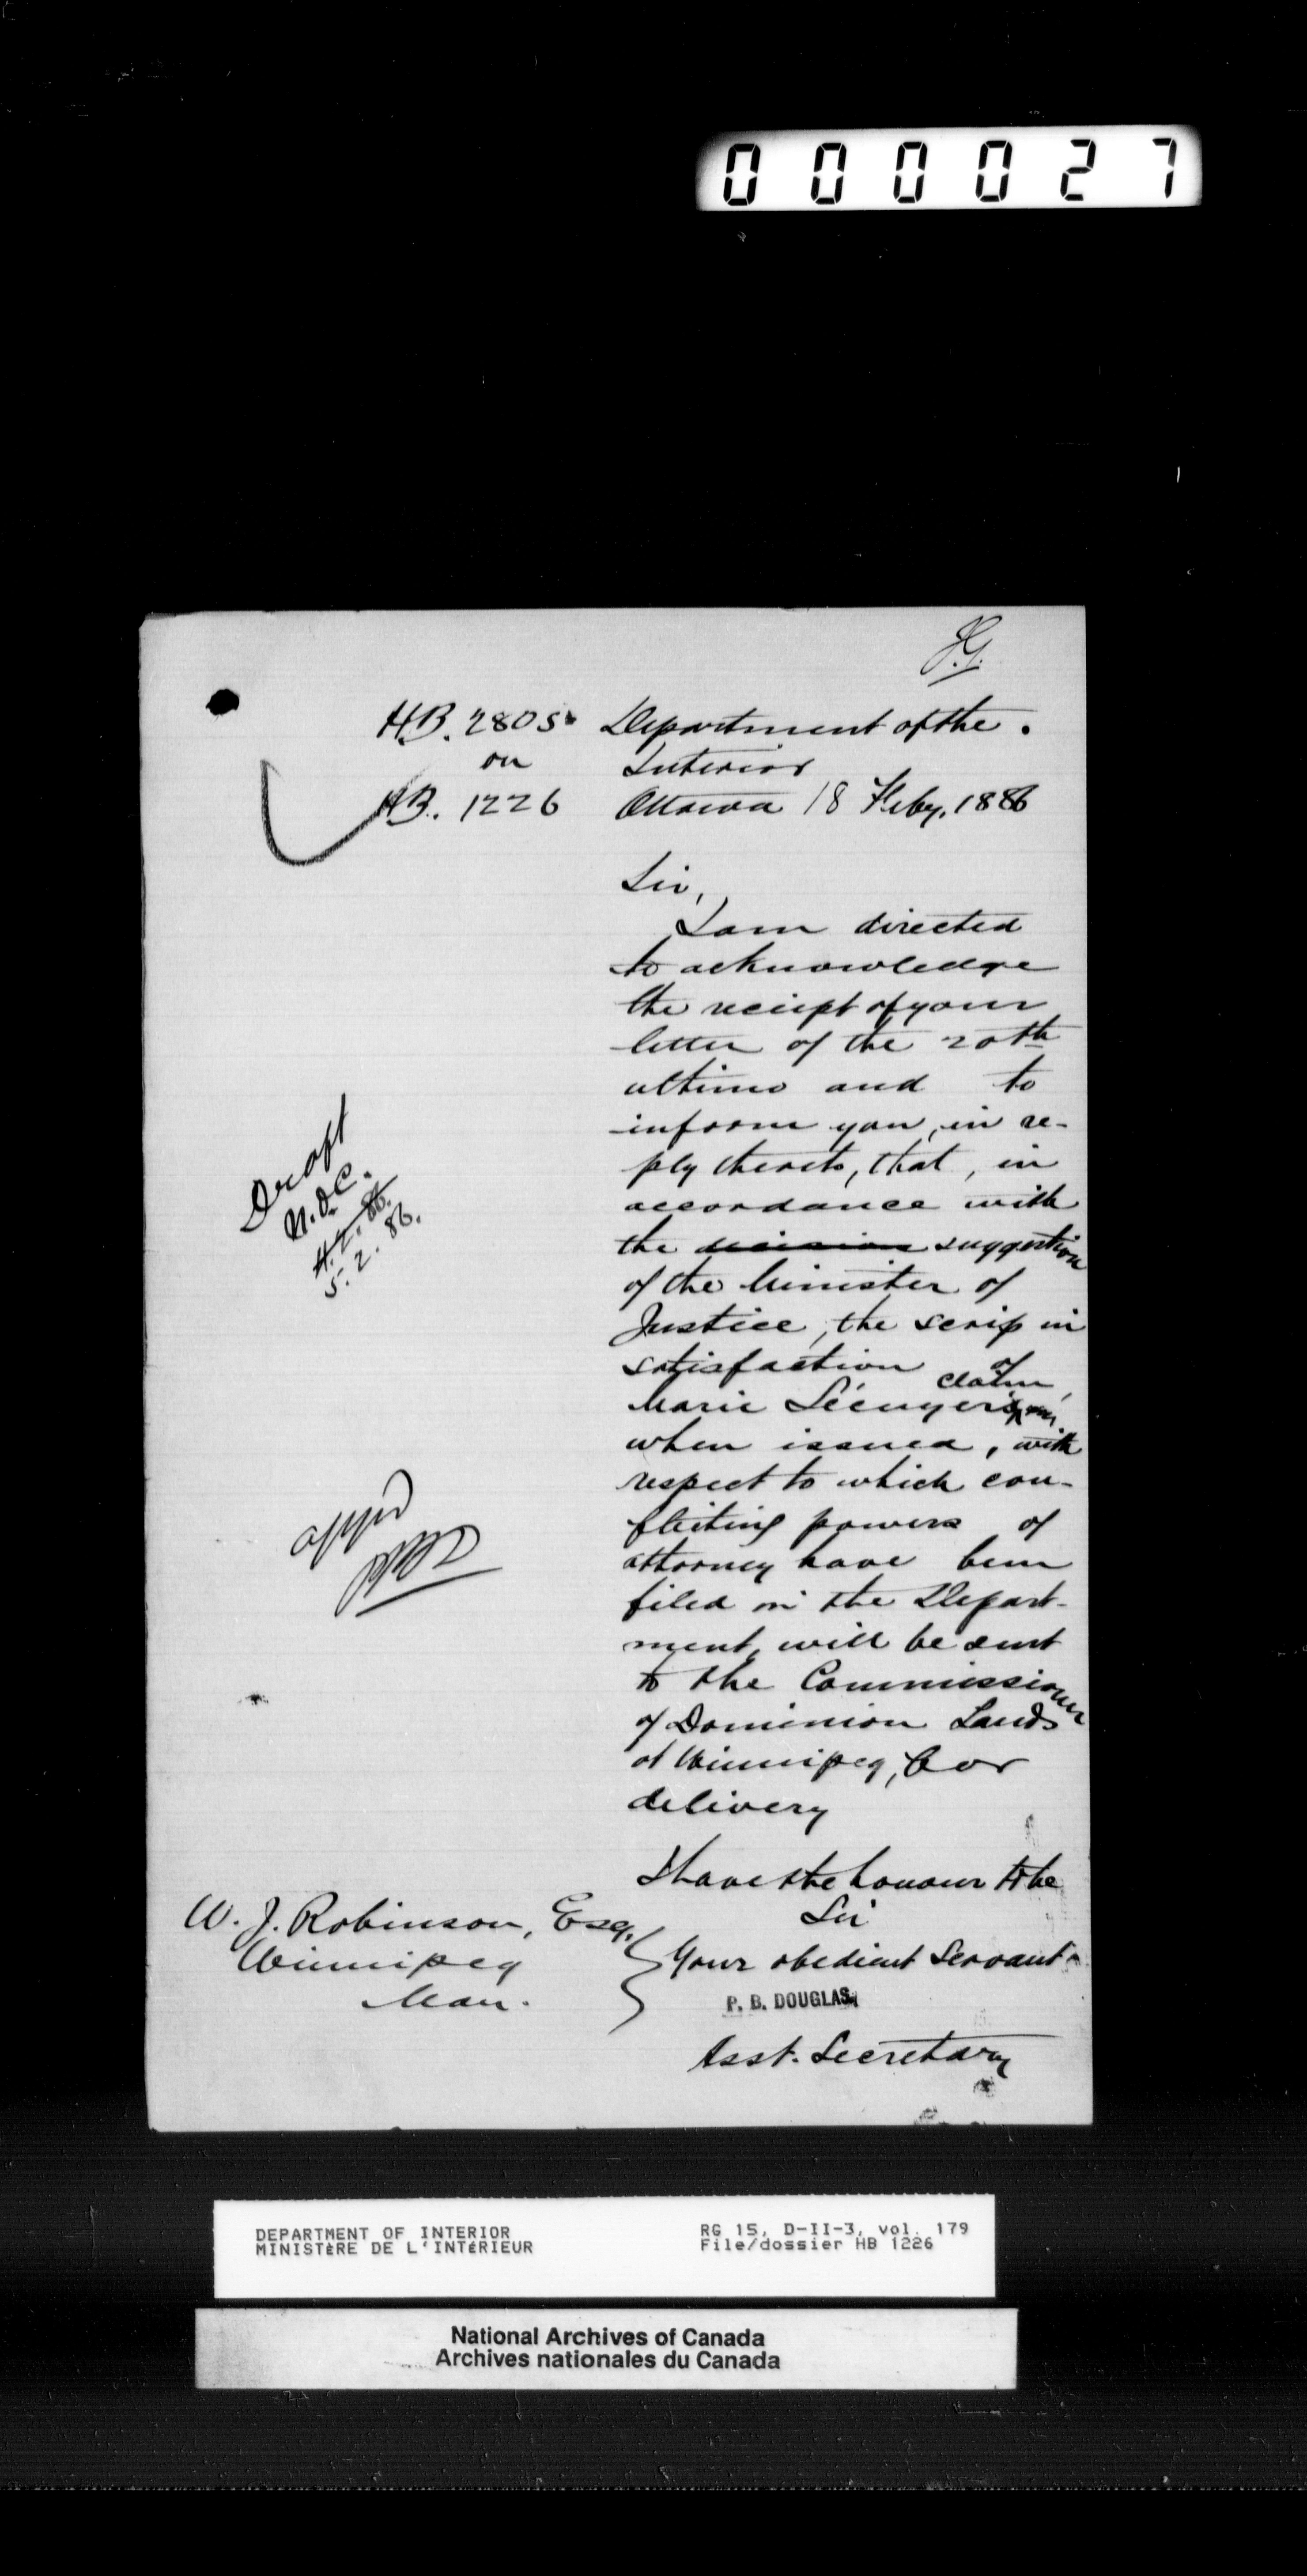 000027
J.G.
H.B. 2805 Department of the
on Interior
H.B. 1226 Ottawa 18 Feby. 1886
Sir,
I am directed
to acknowledge
the reciept of your
letter of the 20th
ultimo and to
inform you, in re-
ply thereto, that, in
accordance with
the decision suggestion
of the Minister of
Justice, the scrip in
satisfaction of
claim
Marie Lécuyer
when issued, with
respect to which con-
flicting powers of
attorney have been
filed in the Depart-
ment, will be sent
to the Commissioner
of Dominion Lands
at Winnipeg, for
delivery
I have the honour to be
Sir
Your obedient Servant
P. B. DOUGLAS,
Asst. Secretary
W. J. Robinson, Esq.
Winnipeg
Man.
Draft
4.2.86.
5.2.86.
appd
DEPARTMENT OF INTERIOR
MINISTÈRE DE L'INTÉRIEUR
RG 15, D-II-3, vol. 179
File/dossier HB 1226
National Archives of Canada
Archives nationales du Canada